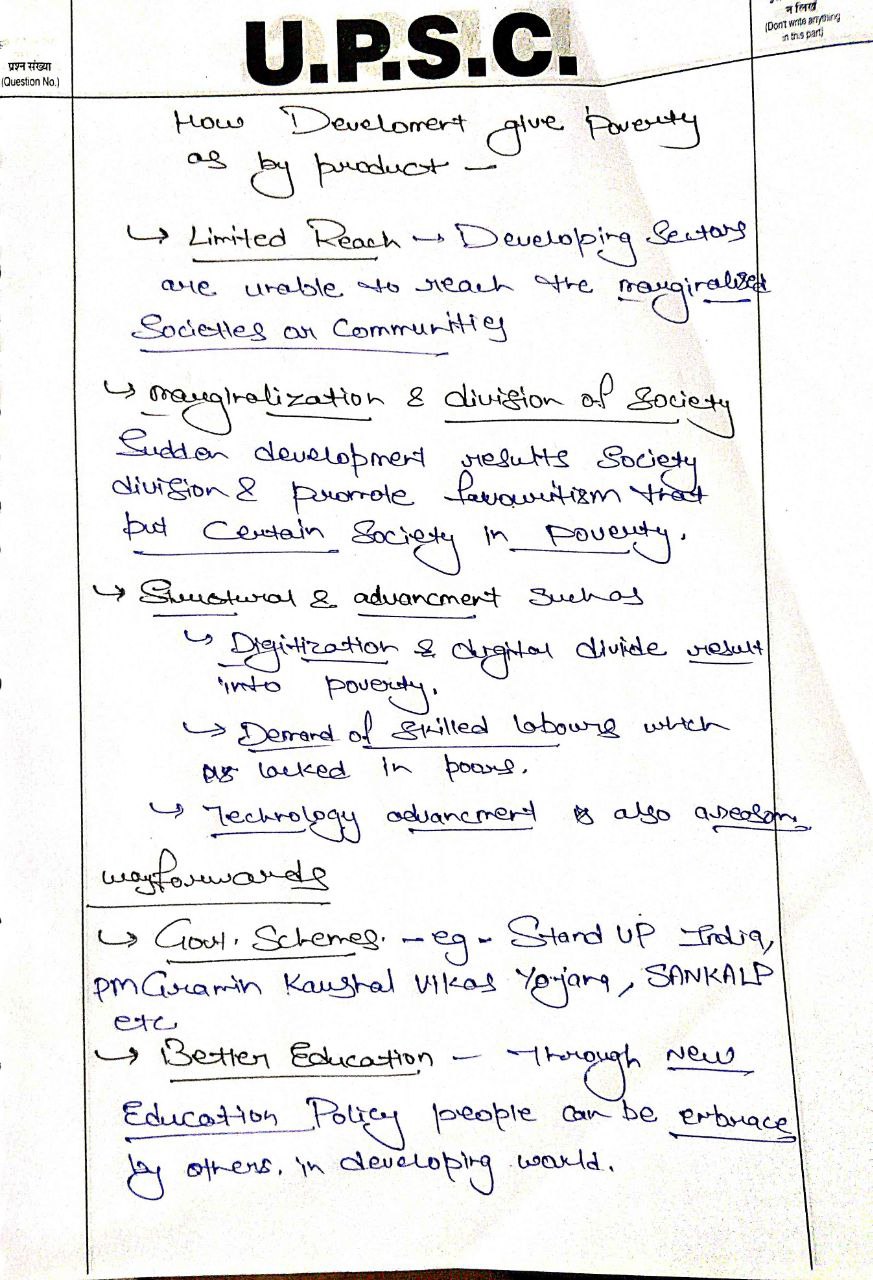 U.P.S.C.
प्रश्न संख्या
(Question No.)
न लिखें
(Don't write anything
in this part)
How Develoment give Poverty
as by product —
↳ Limited Reach → Developing Sectors
are unable to reach the marginalised
Societies or Communities
↳ marginalization & division of Society
Sudden development results Society
division & promote favouritism that
put Certain Society in Poverty.
↳ Structural & advancment Such as
↳ Digitization & digital divide result
into poverty.
↳ Demand of skilled labours which
is lacked in poors.
↳ Technology advancment is also a reason.
wayforwards
↳ Govt. Schemes. – eg – Stand UP India,
PM Gramin Kaushal Vikas Yojana, SANKALP
etc
↳ Better Education – Through New
Education Policy people can be embrace
by others. in developing world.